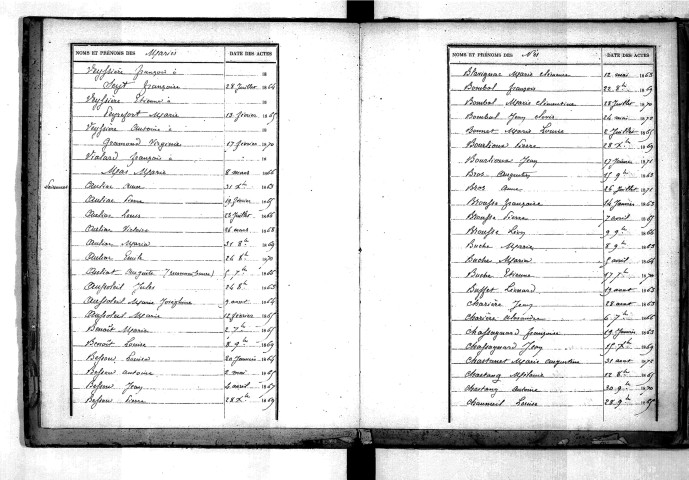 NOMS ET PRÉNOMS DES Mariés DATE DES ACTES
Veyssière François à 18
Seyt Françoise 28 Juillet 1864
Veyssière Etienne à 18
Peyrefort Marie 13 février 1865
Veyssière Antoine à 18
Gramond Virginie 17 février 1870
Vialard François à 18
Mas Marie 8 mars 1866
Naissances
Auliac 31 Xbre 1863
Auliac Pierre 19 février 1865
Auliac Louis 23 Juillet 1866
Auliac Victoire 26 mars 1868
Auliac Maria 31 8bre 1869
Auliac Emile 26 8bre 1870
Auliat Auguste (reconnaissance) 5 7bre 1866
Aupsoleil Jules 24 8bre 1863
Aupsoleil Marie Joséphine 9 août 1864
Aupsoleil Marie 12 février 1865
Benoît Maria 2 7bre 1865
Benoît Louise 8 9bre 1869
Bessou Louise 20 Janvier 1864
Bessou Antoine 2 mai 1865
Bessou Jean 4 avril 1867
Bessou Pierre 28 Xbre 1869
NOMS ET PRÉNOMS DES Nés DATE DES ACTES
Blavignac Marie Clémence 12 mai 1863
Bombal François 22 8bre 1869
Bombal Marie Clémentine 28 Juillet 1870
Bombal Jean 24 mai 1870
Bonnet Marie Louise 2 Juillet 1865
Bourlioux Pierre 28 Xbre 1869
Bourlioux Jean 17 Janvier 1871
Bros Augustin 15 9bre 1863
Bros Anne 26 Juillet 1871
Brousse Françoise 14 Janvier 1863
Brousse Pierre 7 avril 1865
Brousse Léon 9 9bre 1866
Buche Marie 8 9bre 1863
Buche Maria 9 avril 1866
Buche Etienne 17 7bre 1870
Buffet Léonard 19 août 1863
Charière Jean 28 août 1863
Charière Alexandre 6 7bre 1866
Chassagnard Françoise 19 Janvier 1863
Chassagnard Jean 15 Xbre 1869
Chastanet Marie Augustine 31 août 1872
Chastang 12 8bre 1865
Chastang Antoine 30 9bre 1870
Chaumeil Louise 28 9bre 1865